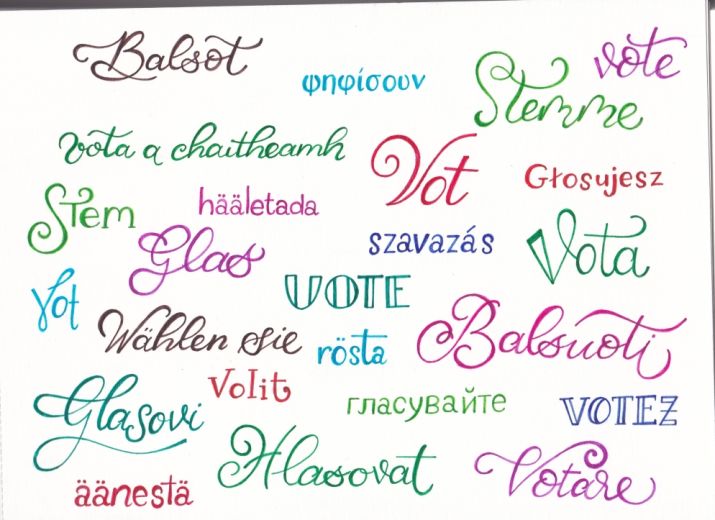 Balsot
φηφίσουν
Stemme
vote
vóta a chaitheamh
Vot
Głosujesz
Stem
hääletada
Glas
szavazás
Vota
Vot
VOTE
Wählen sie
rösta
Balsuoti
Glasovi
Volit
гласувайте
VOTEZ
äänestä
Hlasovat
Votare